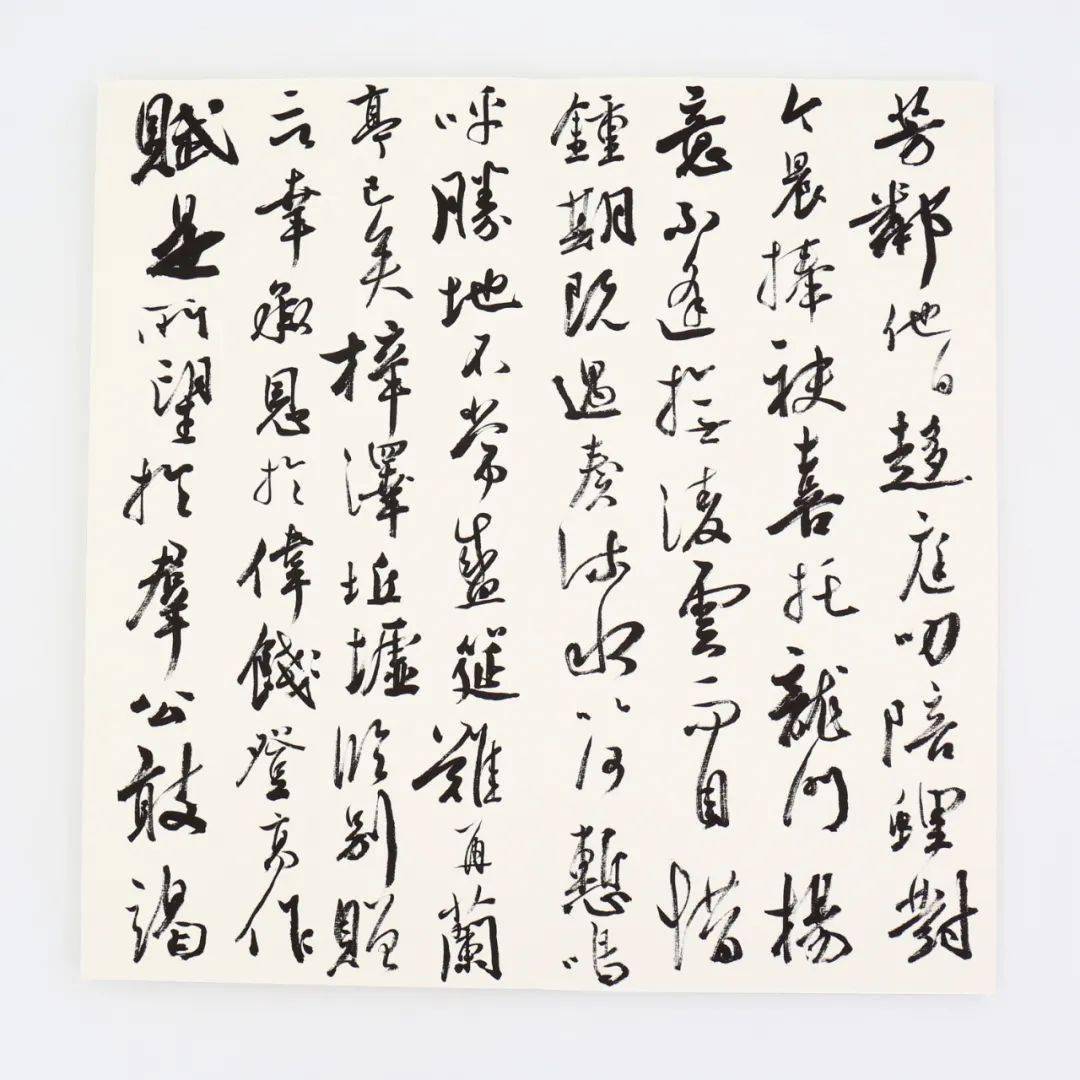 芳鄰他日趍庭叨陪鯉對
今晨捧袂喜托龍門楊
意不逢撫淩雲而自惜
鍾期既遇奏流水以何慙嗚
呼勝地不常盛筵難再蘭
亭已矣梓澤坵墟臨別贈
言幸承恩於偉餞登高作
賦是所望於羣公敢竭